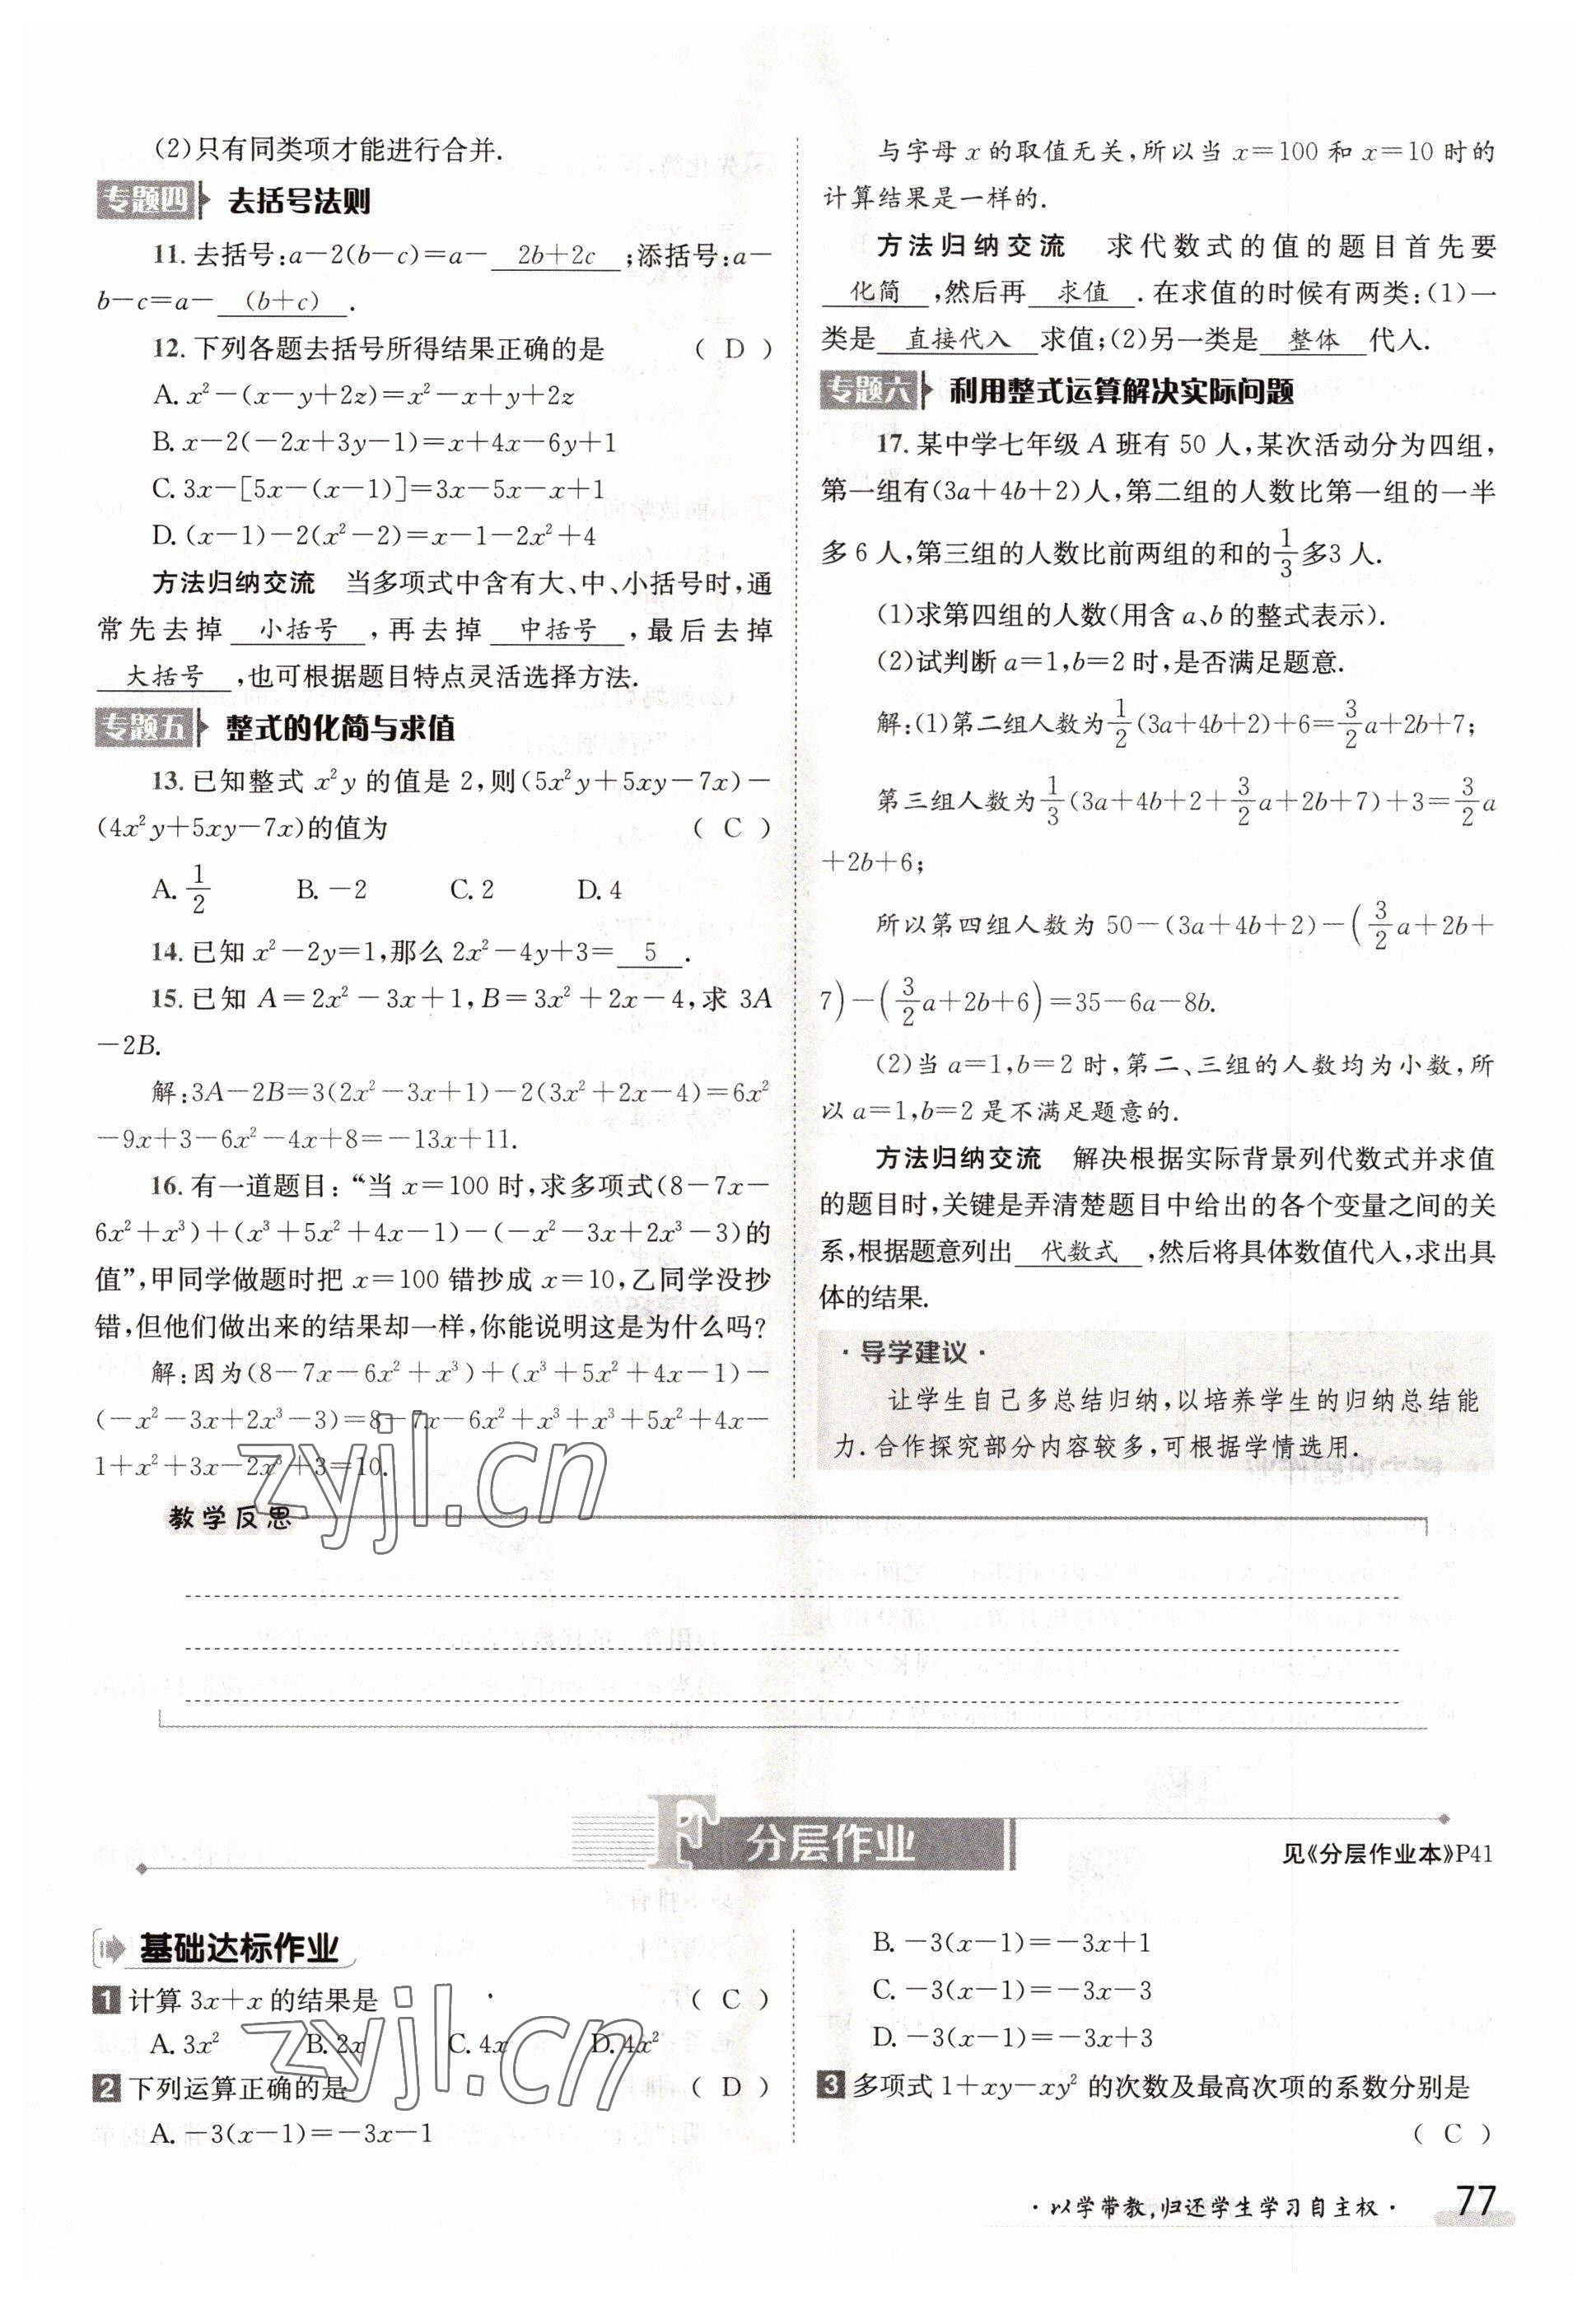 (2)只有同类项才能进行合并.
专题四 去括号法则
11. 去括号:a-2(b-c)=a- 2b+2c ;添括号:a-
b-c=a- (b+c) .
12. 下列各题去括号所得结果正确的是 ( D )
A. x²-(x-y+2z)=x²-x+y+2z
B. x-2(-2x+3y-1)=x+4x-6y+1
C. 3x-[5x-(x-1)]=3x-5x-x+1
D. (x-1)-2(x²-2)=x-1-2x²+4
方法归纳交流 当多项式中含有大、中、小括号时,通
常先去掉 小括号 ,再去掉 中括号 ,最后去掉
大括号 ,也可根据题目特点灵活选择方法.
专题五 整式的化简与求值
13. 已知整式 x²y 的值是 2,则(5x²y+5xy-7x)-
(4x²y+5xy-7x)的值为 ( C )
A. 1/2 B. -2 C. 2 D. 4
14. 已知 x²-2y=1,那么 2x²-4y+3= 5 .
15. 已知 A=2x²-3x+1,B=3x²+2x-4,求 3A
-2B.
解:3A-2B=3(2x²-3x+1)-2(3x²+2x-4)=6x²
-9x+3-6x²-4x+8=-13x+11.
16. 有一道题目:“当 x=100 时,求多项式(8-7x-
6x²+x³)+(x³+5x²+4x-1)-(-x²-3x+2x³-3)的
值”,甲同学做题时把 x=100 错抄成 x=10,乙同学没抄
错,但他们做出来的结果却一样,你能说明这是为什么吗?
解:因为(8-7x-6x²+x³)+(x³+5x²+4x-1)-
(-x²-3x+2x³-3)=8-7x-6x²+x³+x³+5x²+4x-
1+x²+3x-2x³+3=10.
与字母 x 的取值无关,所以当 x=100 和 x=10 时的
计算结果是一样的.
方法归纳交流 求代数式的值的题目首先要
化简 ,然后再 求值 .在求值的时候有两类:(1)一
类是 直接代入 求值;(2)另一类是 整体 代入.
专题六 利用整式运算解决实际问题
17. 某中学七年级 A 班有 50 人,某次活动分为四组,
第一组有(3a+4b+2)人,第二组的人数比第一组的一半
多 6 人,第三组的人数比前两组的和的1/3多3 人.
(1)求第四组的人数(用含 a、b 的整式表示).
(2)试判断 a=1,b=2 时,是否满足题意.
解:(1)第二组人数为1/2(3a+4b+2)+6=3/2a+2b+7;
第三组人数为1/3(3a+4b+2+3/2a+2b+7)+3=3/2a
+2b+6;
所以第四组人数为 50-(3a+4b+2)-(3/2a+2b+
7)-(3/2a+2b+6)=35-6a-8b.
(2)当 a=1,b=2 时,第二、三组的人数均为小数,所
以 a=1,b=2 是不满足题意的.
方法归纳交流 解决根据实际背景列代数式并求值
的题目时,关键是弄清楚题目中给出的各个变量之间的关
系,根据题意列出 代数式 ,然后将具体数值代入,求出具
体的结果.
·导学建议·
让学生自己多总结归纳,以培养学生的归纳总结能
力.合作探究部分内容较多,可根据学情选用.
zyjl.cn
教学反思
F 分层作业
见《分层作业本》P41
基础达标作业
1 计算 3x+x 的结果是 ( C )
A. 3x² B. 2x C. 4x D. 4x²
2 下列运算正确的是 ( D )
A. -3(x-1)=-3x-1
zyjl.cn
B. -3(x-1)=-3x+1
C. -3(x-1)=-3x-3
D. -3(x-1)=-3x+3
3 多项式 1+xy-xy² 的次数及最高次项的系数分别是
( C )
·以学带教,归还学生学习自主权·
77